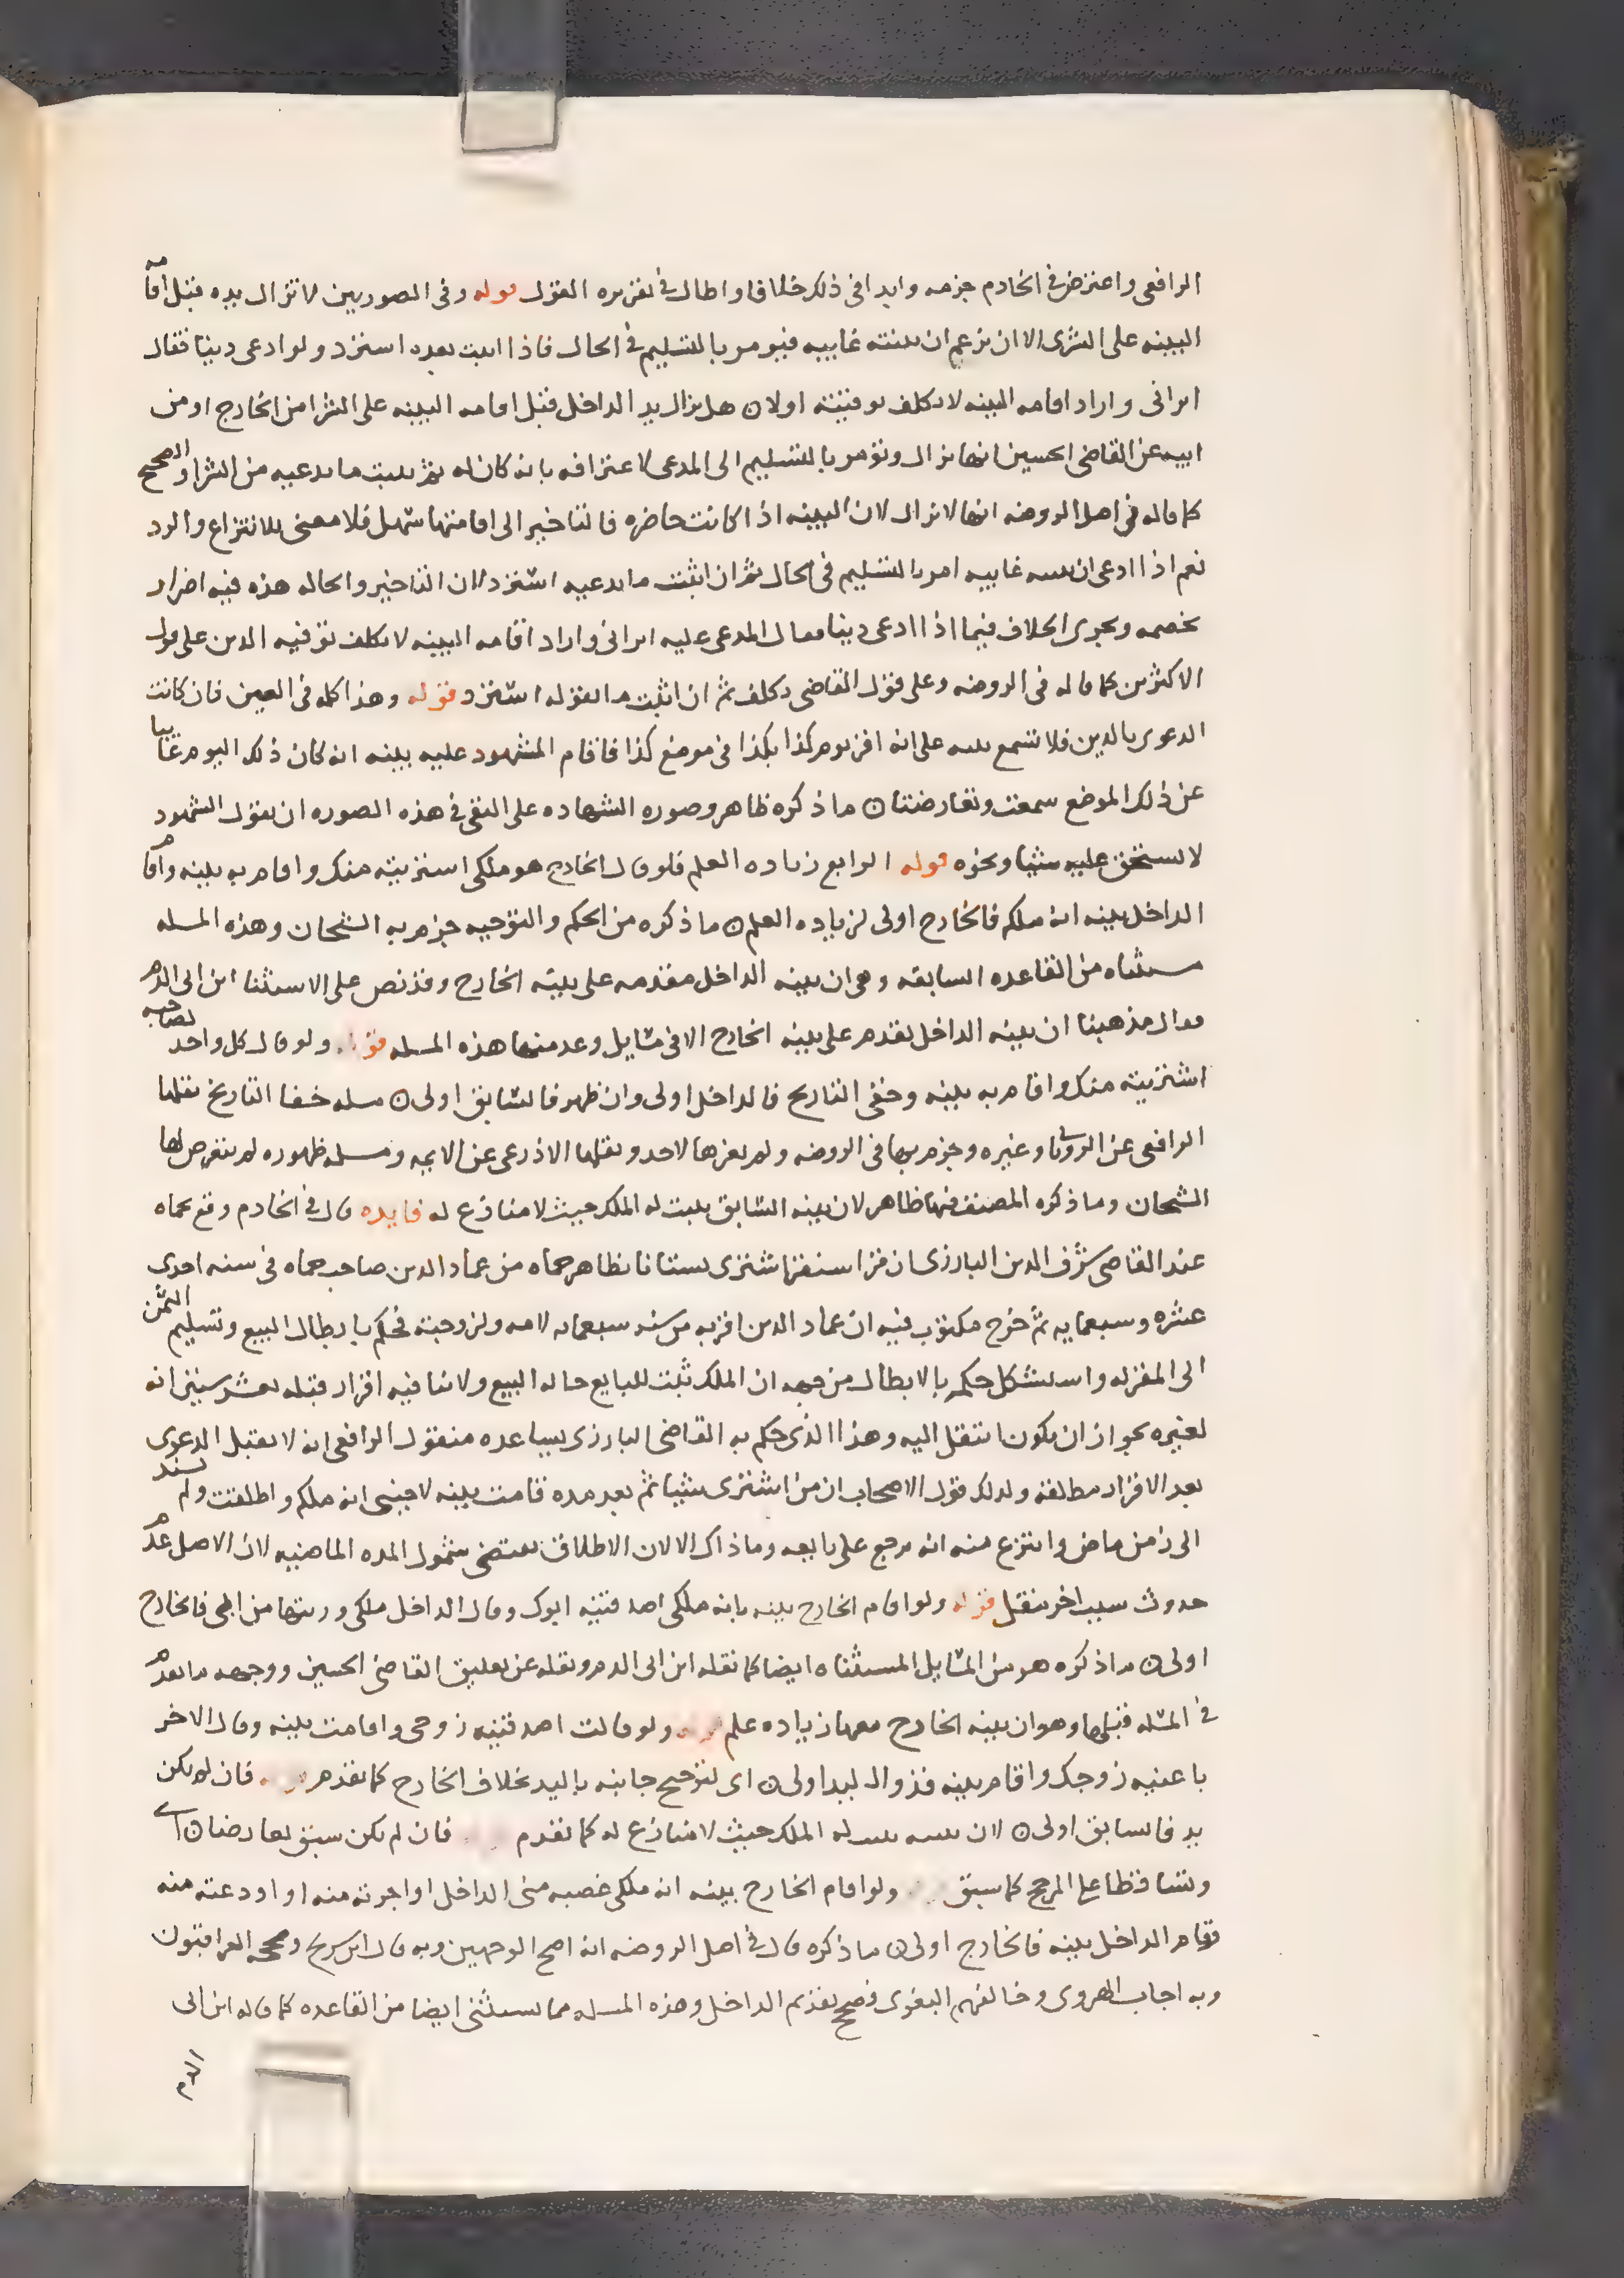 الرافعى واعترض فى الخادم جزمه وابدا فى ذلك خلافا واطال فى تقريره القول قوله وفى الصورتين لا تزال يده قبل اقامه
البينه على الشرى الا ان يزعم ان بينته غايبه فيومر بالتسليم فى الحال فاذا اثبت بعده استرد ولو ادعى دينا فقال
ابرانى واراد اقامه البينه لا يكلف توفيته اولا ن هل تزال يد الداخل قبل اقامه البينه على الشرا من الخارج او من
ابيه عن القاضى الحسين انها تزال ويومر بالتسليم الى المدعى لاعترافه بانه كان له ثم يثبت ما يدعيه من الشرا والصحيح
كما قاله فى اصل الروضه انها لا تزال لان البينه اذا كانت حاضره فالتاخير الى اقامتها سهل فلا معنى للانتزاع والرد
نعم اذا ادعى ان بينته غايبه امر بالتسليم فى الحال ثم ان اثبت ما يدعيه استرد لان التاخير والحاله هذه فيه اضرار
بخصمه ويجرى الخلاف فيما اذا ادعى دينا فقال المدعى عليه ابرانى واراد اقامه البينه لا يكلف توفيه الدين على قول
الاكثرين كما قاله فى الروضه وعلى قول القاضى يكلف ثم ان اثبت ما يقوله استرد قوله وهذا كله فى العين فان كانت
الدعوى بالدين فلا تسمع بينه على انه اقر يوم كذا بكذا فى موضع كذا فاقام المشهود عليه بينه انه كان ذلك اليوم غايبا
عن ذلك الموضع سمعت وتعارضتا ن ما ذكره ظاهر وصوره الشهاده على النفى فى هذه الصوره ان يقول الشهود
لا يستحق عليه شيا ونحوه قوله الرابع زياده العلم فلو قال الخارج هو ملكى اشتريته منك واقام به بينه واقام
الداخل بينه انه ملكه فالخارج اولى لزياده العلم ن ما ذكره من الحكم والتوجيه جزم به الشيخان وهذه المسله
مستثناه من القاعده السابقه وهى ان بينه الداخل مقدمه على بينه الخارج وقد نص على الاستثنا ابن ابى الدم
فقال مذهبنا ان بينه الداخل تقدم على بينه الخارج الا فى مسايل وعد منها هذه المسله قوله ولو قال كل واحد لصاحبه
اشتريته منك واقام به بينه وخفى التاريخ فالداخل اولى وان ظهر فالسابق اولى ن مسله خفا التاريخ نقلها
الرافعى عن الرويانى وغيره وجزم بها فى الروضه ولم يعزها لاحد ونقلها الاذرعى عن الايمه ومسله ظهوره لم يتعرض لها
الشيخان وما ذكره المصنف فيها ظاهر لان بينه السابق يثبت له الملك حيث لا منازع له فايده قال فى الخادم وقع بحماه
عند القاضى شرف الدين البارزى ان قراسنقر اشترى بستانا بظاهر حماه من عماد الدين صاحب حماه فى سنه احدى
عشره وسبعمايه ثم خرج مكتوب فيه ان عماد الدين اقر به من سنه سبعمايه لامه ولزوجته فحكم بابطال البيع وتسليم الثمن
الى المقر له واستشكل حكمه بالابطال من جهه ان الملك ثبت للبايع حاله البيع ولا ينافيه اقرار قبله بعشر سنين انه
لغيره بجواز ان يكون انتقل اليه وهذا الذى حكم به القاضى البارزى يساعده منقول الرافعى انه لا يقبل الدعوى
بعد الاقرار مطلقه ولذلك قول الاصحاب ان من اشترى شيا ثم بعد مده قامت بينه لاجنبى انه ملكه واطلقت ولم تسند
الى زمن ماض وانتزع منه انه يرجع على بايعه وما ذاك الا لان الاطلاق يقتضى شمول المده الماضيه لان الاصل عدم
حدوث سبب اخر ينقل قوله ولو اقام الخارج بينه بانه ملكى اصدقنيه ابوك وقال الداخل ملكى ورثتها من ابى فالخارج
اولى ن ما ذكره هو من المسايل المستثناه ايضا كما نقله ابن ابى الدم ونقله عن تعليق القاضى الحسين ووجهه ما تقدم
فى المسله قبلها وهو ان بينه الخارج معها زياده علم قوله ولو قالت اصدقنيه زوجى واقامت بينه وقال الاخر
باعنيه زوجك واقام بينه فذو اليد اولى ن اى لترجيح جانبه باليد بخلاف الخارج كما تقدم قوله فان لم يكن
يد فالسابق اولى ن لان بينته يثبت له الملك حيث لا منازع له كما تقدم قوله فان لم يكن سبق تعارضا ن اى
وتساقطا على المرجح كما سبق قوله ولو اقام الخارج بينه انه ملكى غصبه منى الداخل او اجرته منه او اودعته منه
فقام الداخل بينه فالخارج اولى ن ما ذكره قال فى اصل الروضه انه اصح الوجهين وبه قال ابن سريج وصححه العراقيون
وبه اجاب الهروى وخالفهم البغوى فصحح تقديم الداخل وهذه المسله مما يستثنى ايضا من القاعده كما قاله ابن ابى
الدم